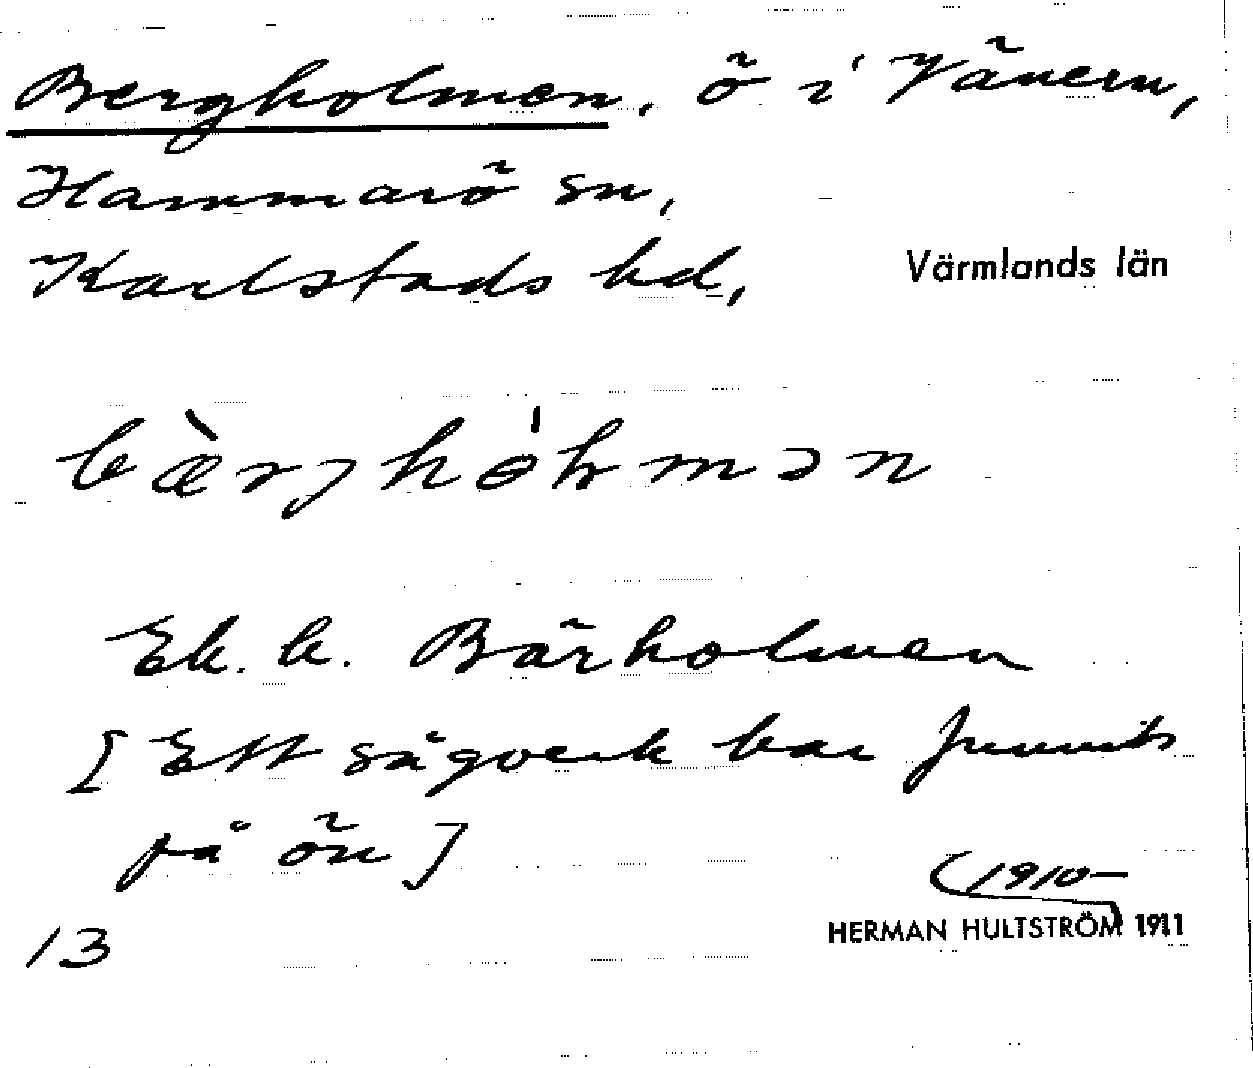 Bergholmen, ö i Vänern,
Hammarö sn,
Karlstads hd, Värmlands län
bærjhólmən
Ek. k. Bärholmen
[Ett sågverk har funnits
på ön]
(1910–
13 HERMAN HULTSTRÖM 1911